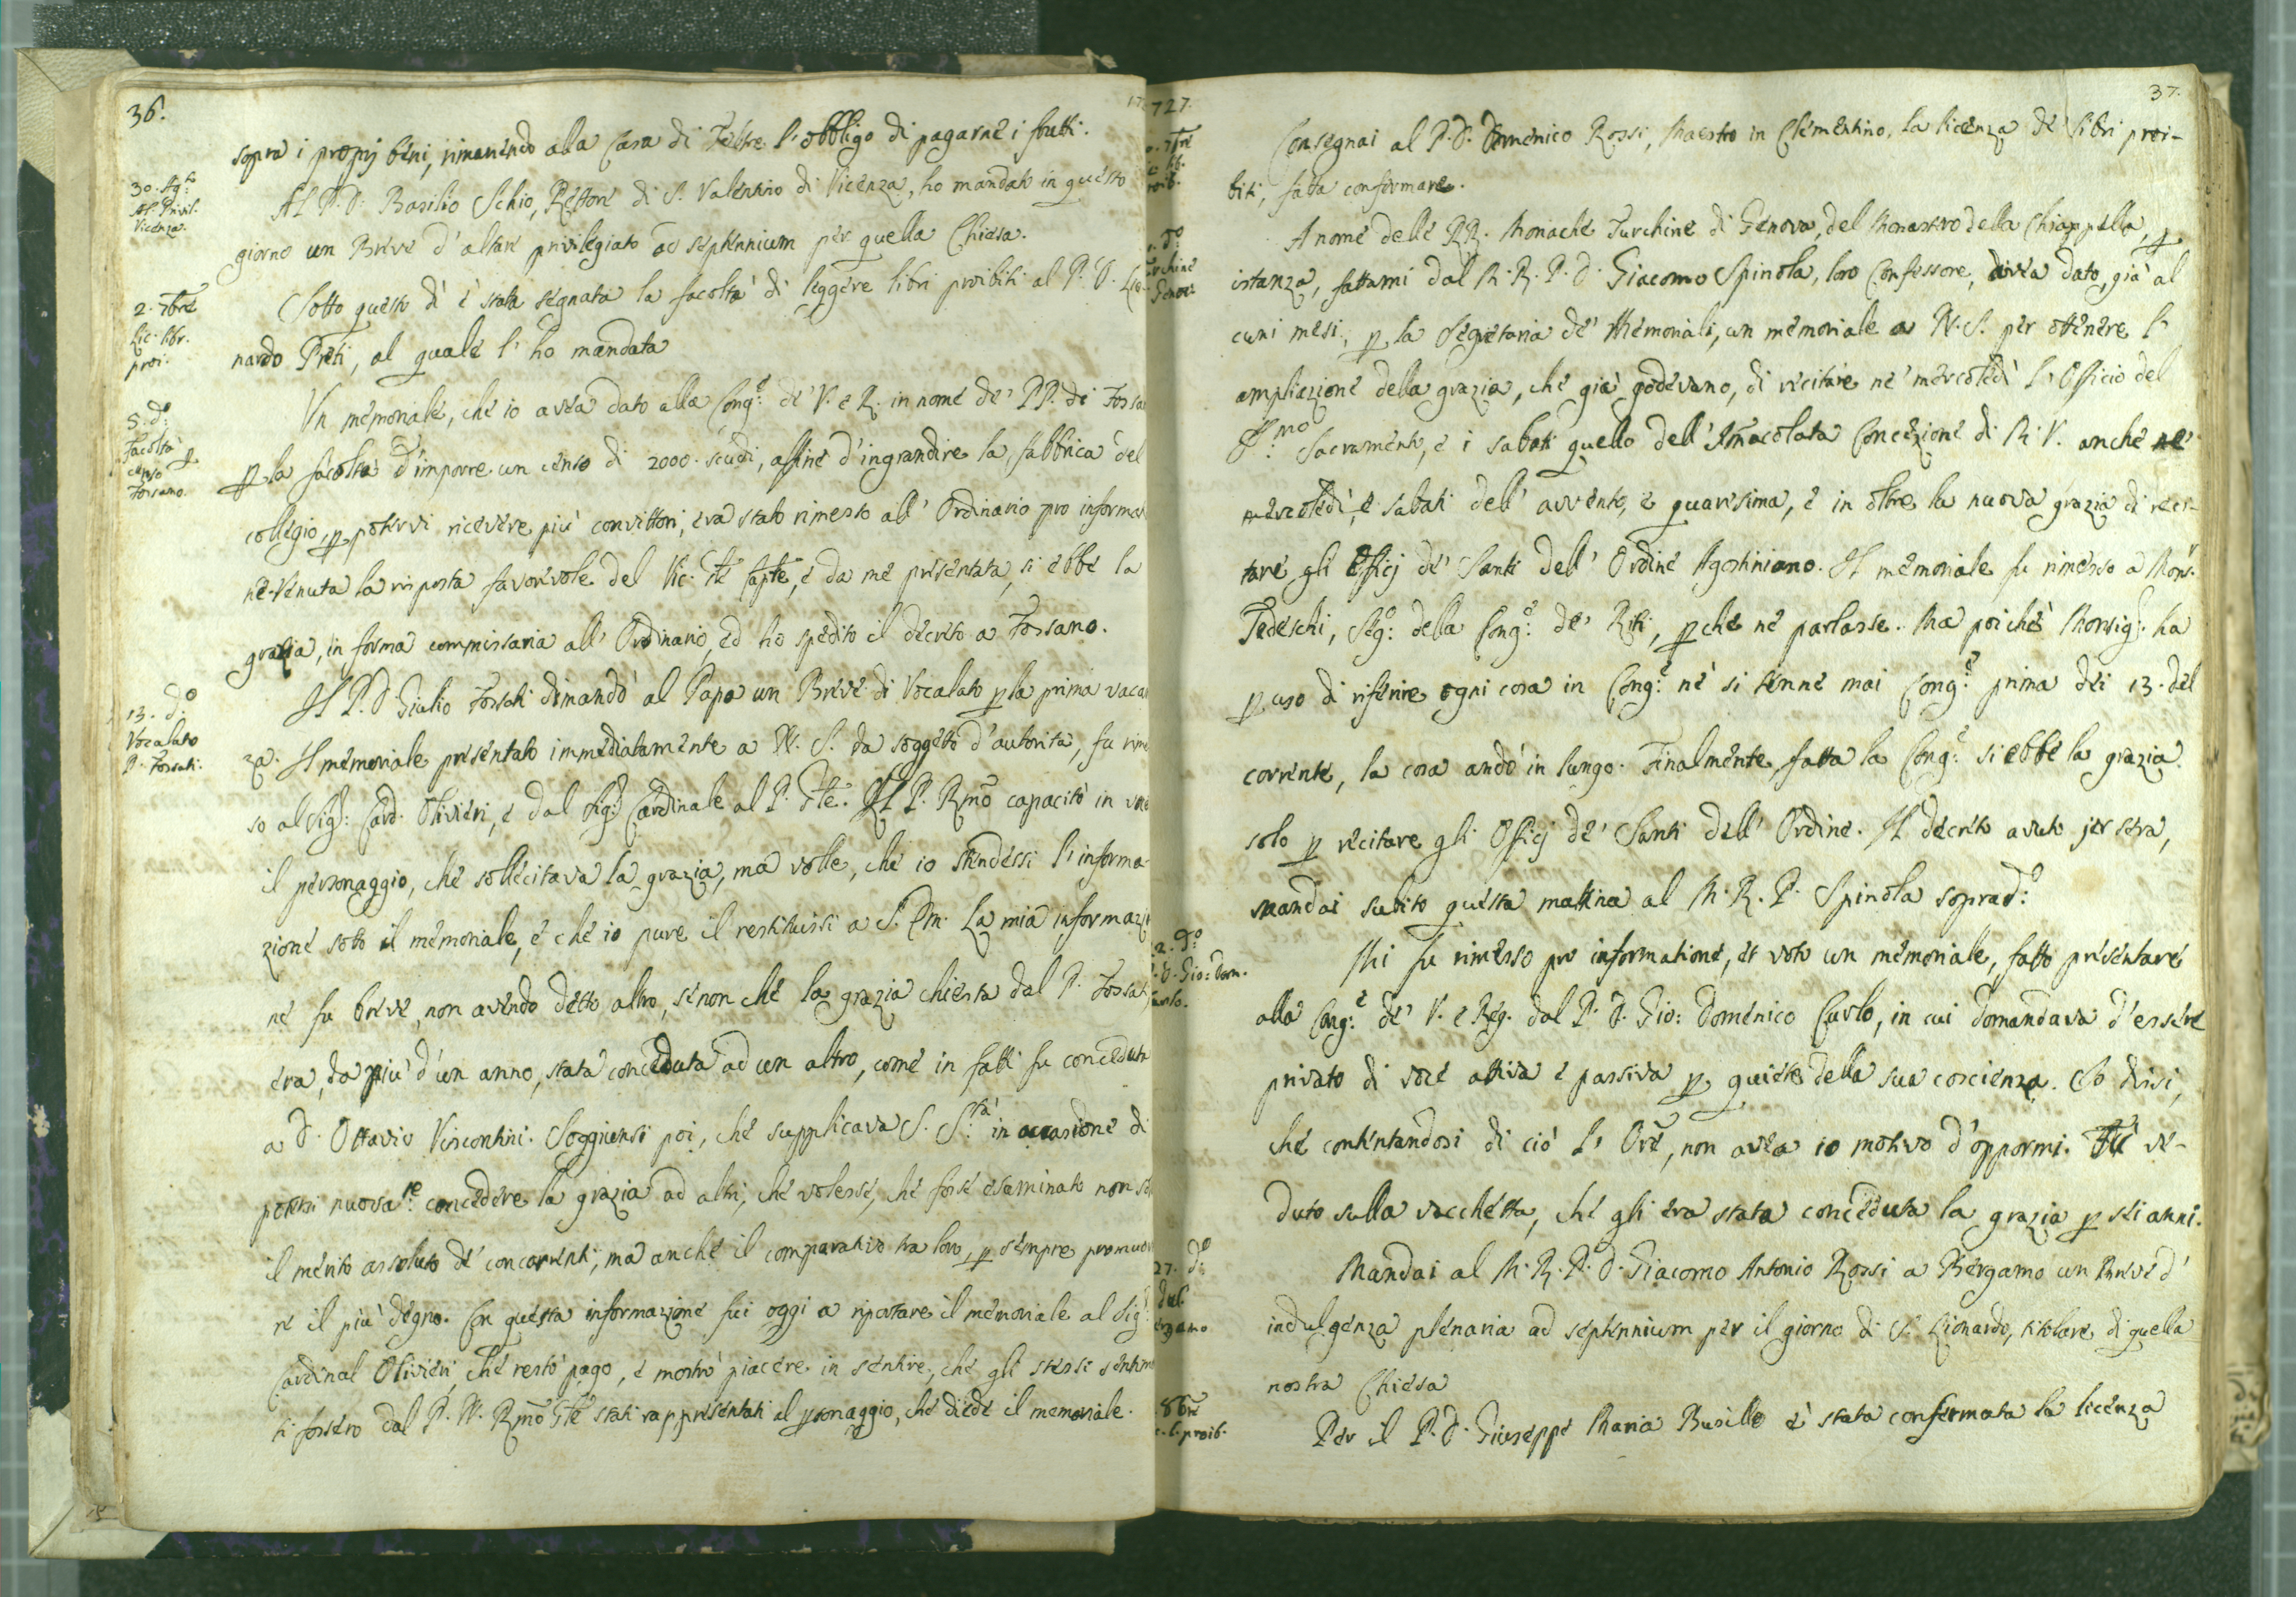 36.
sopra i proprj beni, rimanendo alla Casa di Feltre l'obbligo di pagarne i frutti.
30. Ag.to
Al. Privil.
Vicenza.
Al P. D. Basilio Schio, Rettore di S. Valentino di Vicenza, ho mandato in questo
giorno un Breve d'altare privilegiato ad septennium per quella Chiesa.
2. 7bre
Lic. libr.
proi.
Sotto questo dì è stata segnata la facoltà di leggere libri proibiti al P. D. Lio-
nardo Preti, al quale l'ho mandata
5. d.o
Facoltà
censo p
Fossano.
Un memoriale, che io avea dato alla Cong.e de' V. e R. in nome de' PP. di Fossa
p la facoltà d'imporre un censo di 2000. scudi, affine d'ingrandire la fabbrica del
collegio, p potervi ricevere più convittori, era stato rimesso all'Ordinario pro informat
ne. Venuta la risposta favorevole del Vic. Gle Capte, e da me presentata, si ebbe la
grazia, in forma commissaria all'Ordinario, ed ho spedito il decreto a Fossano.
13. d.o
Vocalato
P. Fossati.
Il P. D. Giulio Fossati dimandò al Papa un Breve di Vocalato p la prima vacan
za. Il memoriale presentato immediatamente a N. S. da soggetto d'autorità, fu rime
so al Sig.r Card. Olivieri, e dal Sig.r Cardinale al P. Gle. Il P. Rmo capacitò in voce
il personaggio, che sollecitava la grazia, ma volle, che io stendessi l'informa-
zione sotto il memoriale, e che io pure il restituissi a S. Em. La mia informazio
ne fu breve, non avendo detto altro, se non che la grazia chiesta dal P. Fossati
era, da più d'un anno, stata conceduta ad un altro, come in fatti fu conceduta
a D. Ottavio Visconti. Soggiunsi poi, che supplicava S. S.tà in occasione di
potersi nuova.te concedere la grazia ad altri, che volesse, che fosse esaminato non so
il merito assoluto de' concorrenti, ma anche il comparativo tra loro, p sempre promuov
re il più degno. Con questa informazione fui oggi a riportare il memoriale al Sig.
Cardinal Olivieri, che restò pago, e mostrò piacere in sentire, che gli stessi sentim
ti fossero dal P. N. Rmo Gle stati rappresentati al psonaggio, che diede il memoriale.
727.
37.
Consegnai al P. D. Domenico Rossi, Maestro in Clementino, la licenza de' libri proi-
biti, fatta confermare.
A nome delle RR. Monache Turchine di Genova, del Monastero della Chiappella, p
istanza, fattami dal M. R. P. D. Giacomo Spinola, loro Confessore, avea dato, già al
cuni mesi, p la Segretaria de' Memoriali, un memoriale a N. S. per ottenere l'
ampliazione della grazia, che già godevano, di recitare ne' mercoledì l'Officio del
S.mo Sacramento, e i sabati quello dell'Immacolata Concezione di M. V. anche ne'
mercoledì, e sabati dell'avvento, e quaresima, e in oltre la nuova grazia di reci-
tare gli Officj de' Santi dell'Ordine Agostiniano. Il memoriale fu rimesso a Mons.r
Tedeschi, Seg.o della Cong.e de' Riti, pche ne parlasse. Ma poichè Monsig.r ha
p uso di riferire ogni cosa in Cong.e nè si tenne mai Cong.e prima dei 13. del
corrente, la cosa andò in lungo. Finalmente, fatta la Cong.e si ebbe la grazia
solo p recitare gli Officj de' Santi dell'Ordine. Il decreto avuto jer sera,
mandai subito questa mattina al M. R. P. Spinola soprad.o
2. d.o
P. D. Gio: Dom.
Curlo.
Mi fu rimesso pro informatione, et voto un memoriale, fatto presentare
alla Cong.e de' V. e Reg. dal P. D. Gio: Domenico Curlo, in cui domandava d'essere
privato di voce attiva e passiva p quiete della sua coscienza. Io dissi,
che contentandosi di ciò l'Ore, non avea io motivo d'oppormi. Ho ve-
duto sulla vacchetta, che gli era stata conceduta la grazia p sei anni.
27. d.o
dul.
ergamo
Mandai al M. R. P. D. Giacomo Antonio Rossi a Bergamo un Breve d'
indulgenza plenaria ad septennium per il giorno di S. Lionardo, titolare di quella
nostra Chiesa
8bre
l. proib.
Per il P. D. Giuseppe Maria Busillo è stata confermata la licenza